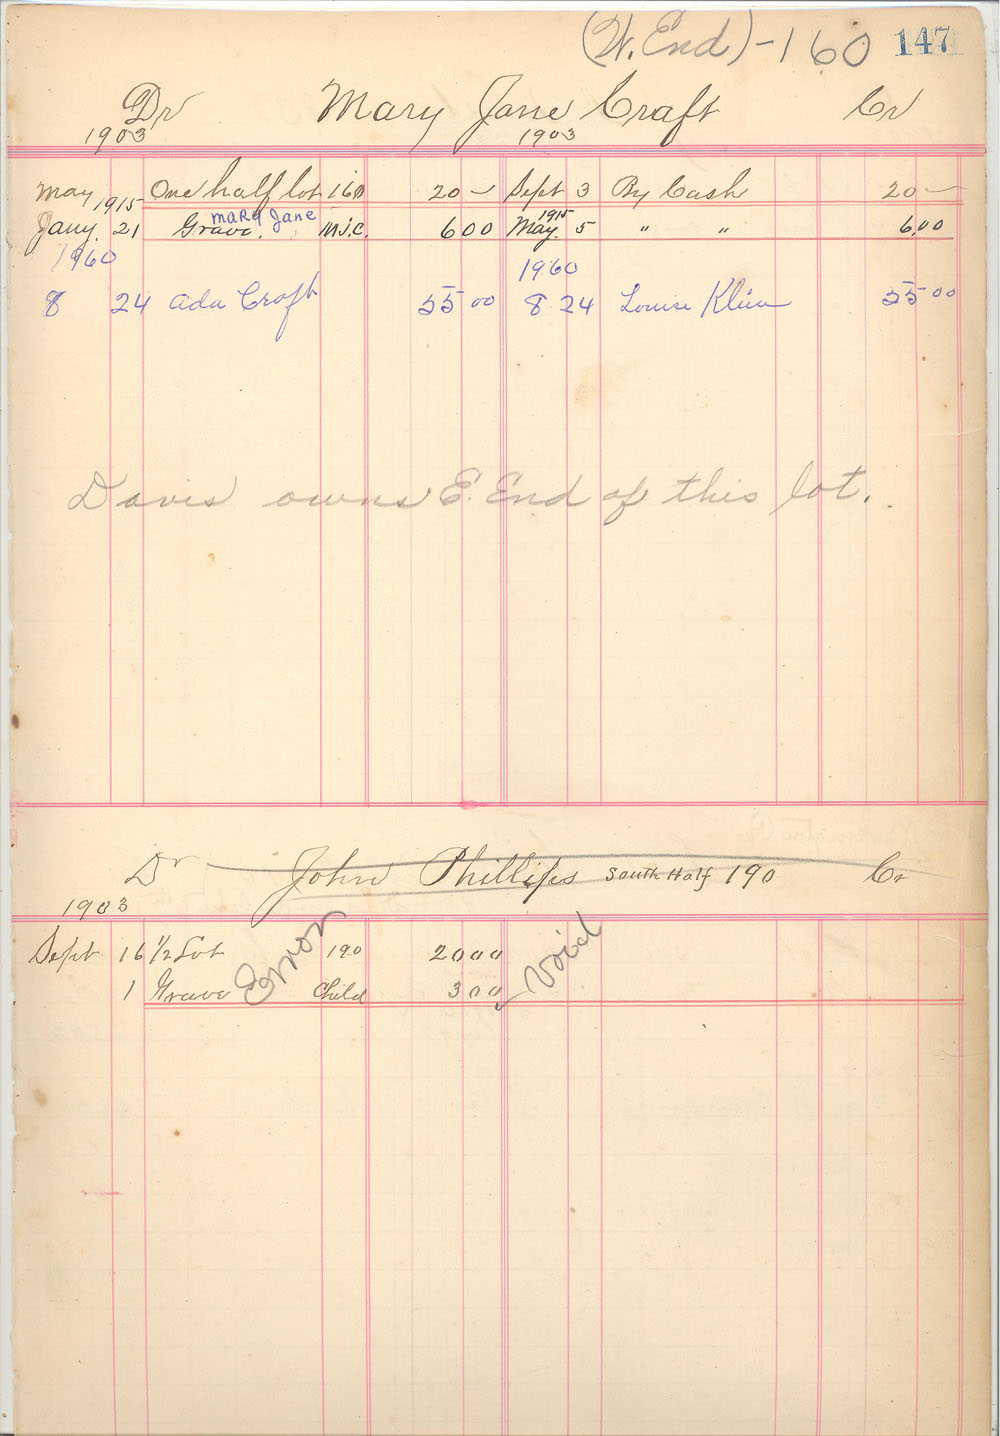 (W. End) - 160 147
Dr Mary Jane Craft Cr
1903 1903
May One half lot 160 20 — Sept 3 By Cash 20 —
1915 Mary Jane 1915
Jany. 21 Grave. M.J.C. 6 00 May. 5 " " 6.00
1960 1960
8 24 Ada Craft 55 00 8 24 Louise 55 00
Davis owns E. End of this lot.
Dr John Phillips South Half 190 Cr
1903
Sept 16 1/2 Lot 190 20 00
1 Grave Child 3 00
Error Void